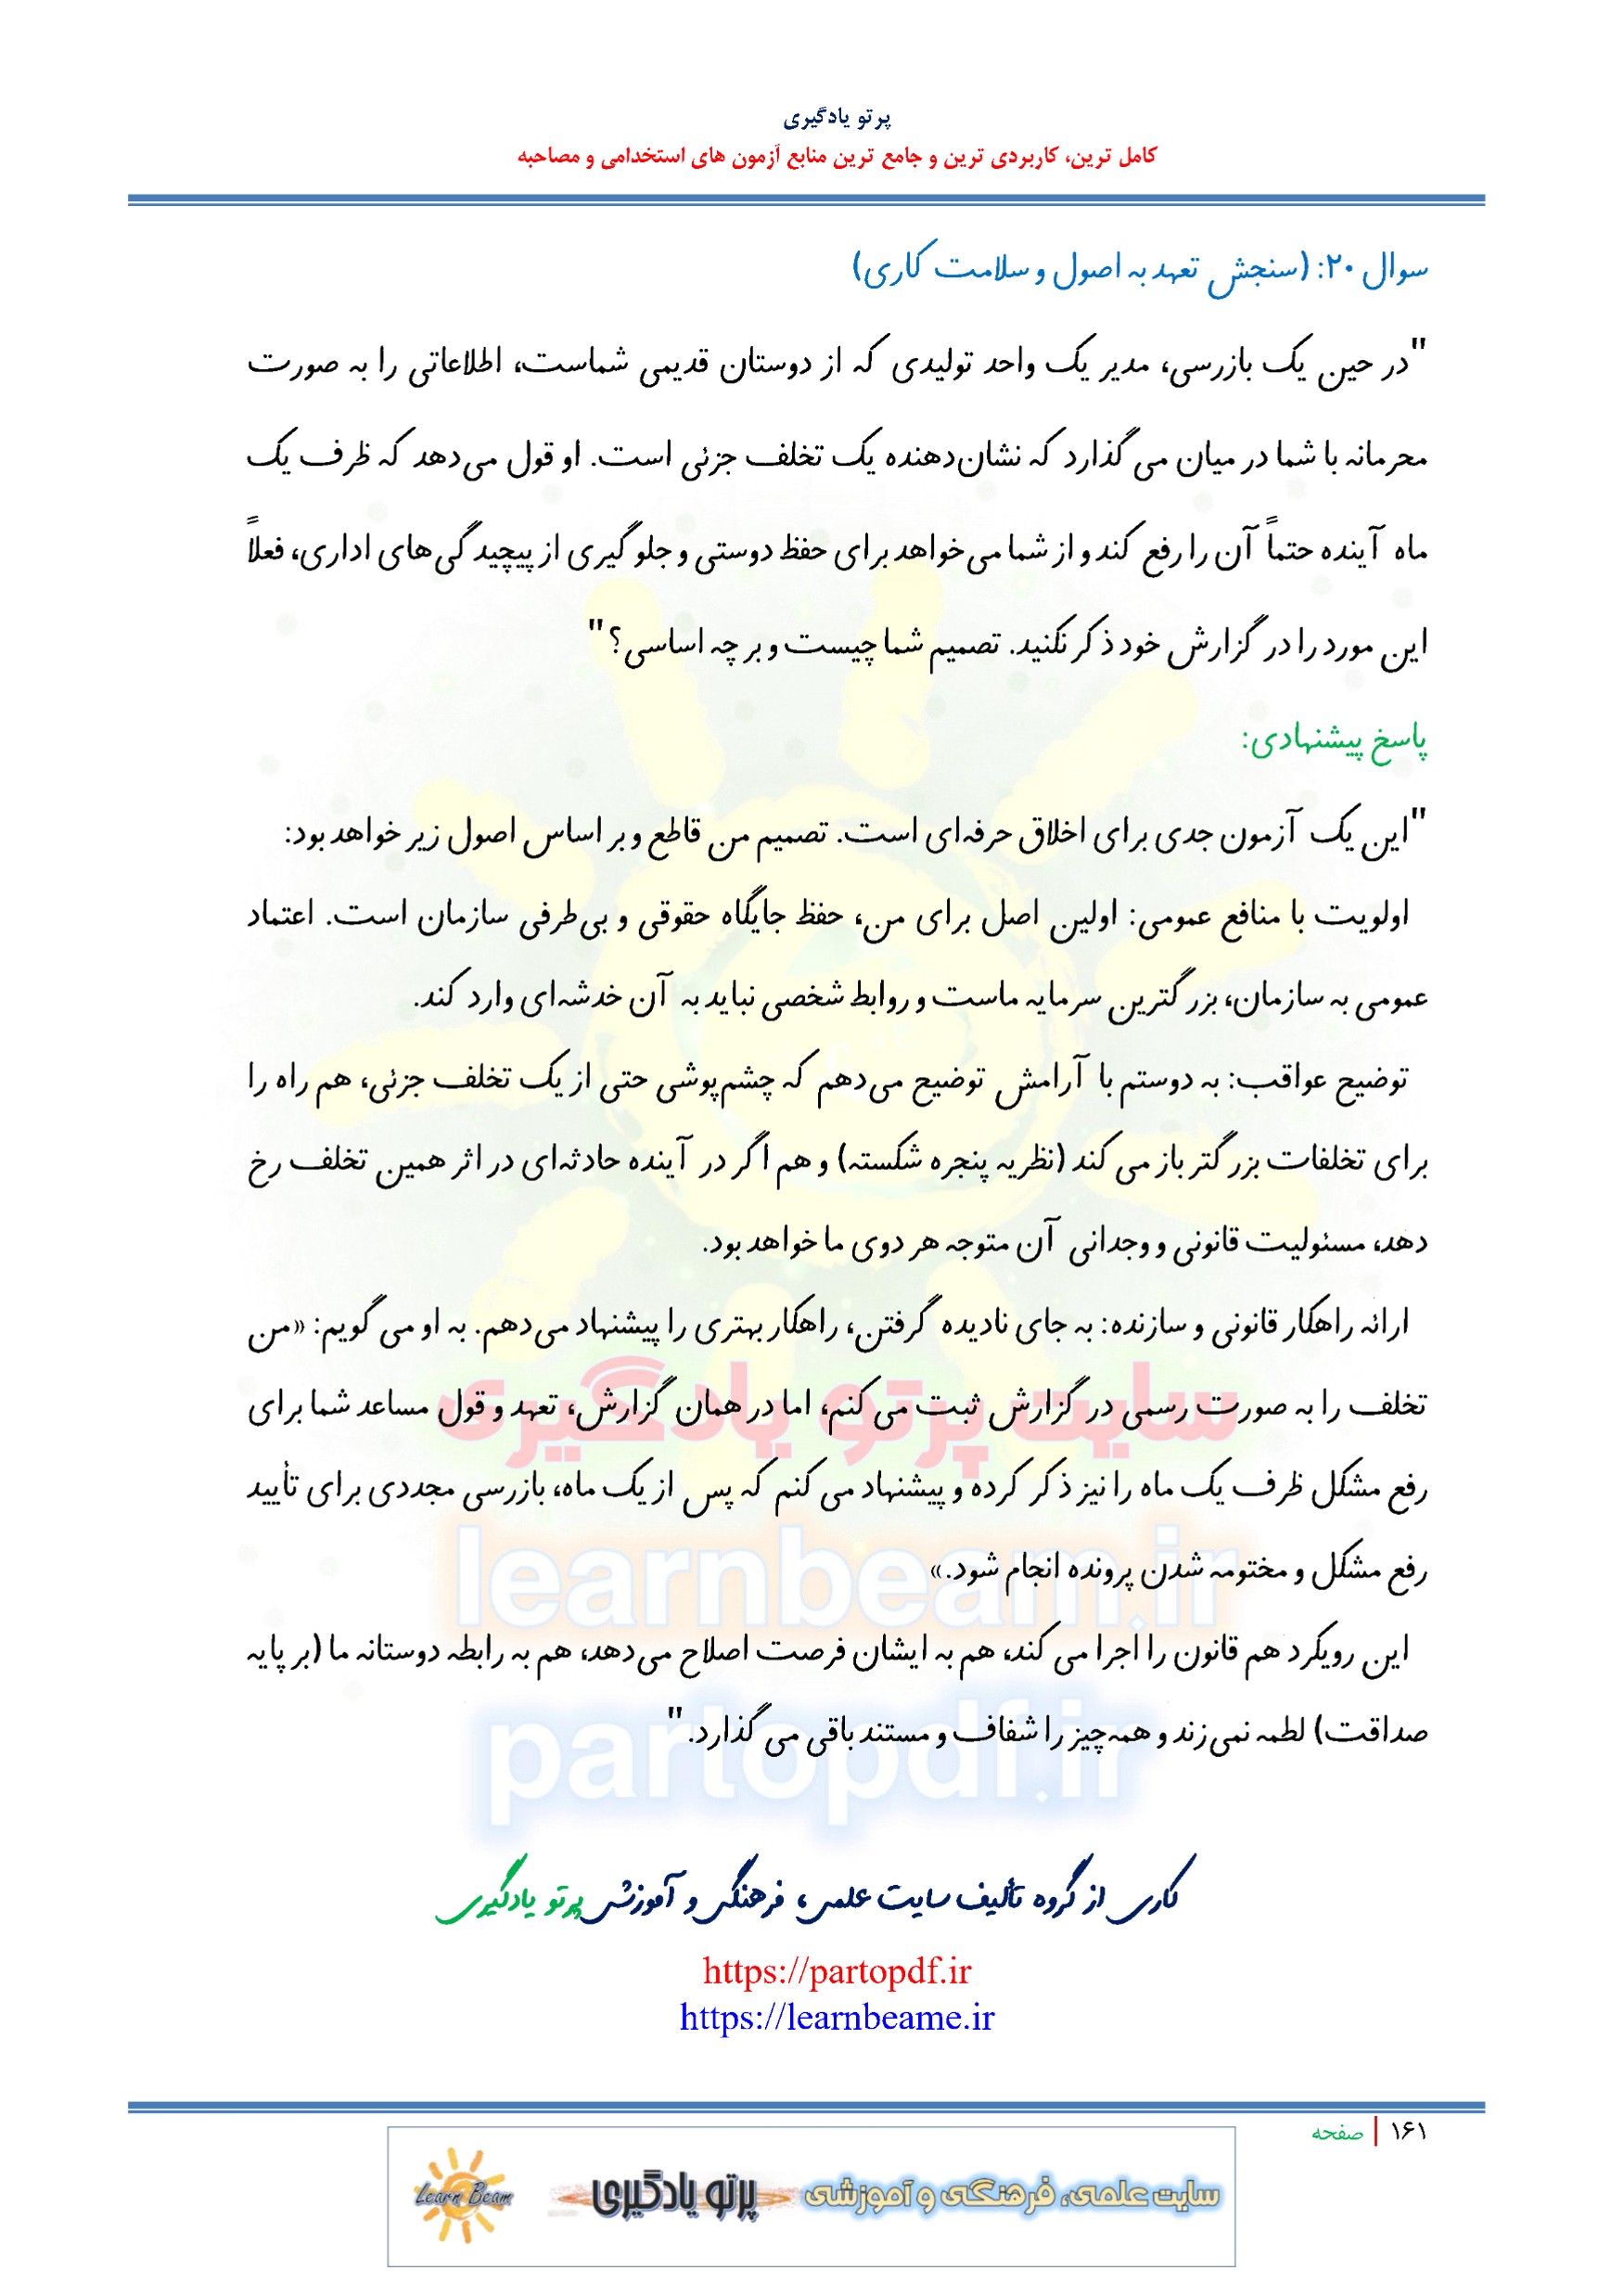 پرتو یادگیری
کامل ترین، کاربردی ترین و جامع ترین منابع آزمون های استخدامی و مصاحبه
سوال ۲۰: (سنجش تعهد به اصول و سلامت کاری)
"در حین یک بازرسی، مدیر یک واحد تولیدی که از دوستان قدیمی شماست، اطلاعاتی را به صورت
محرمانه با شما در میان می گذارد که نشان‌دهنده یک تخلف جزئی است. او قول می‌دهد که ظرف یک
ماه آینده حتماً آن را رفع کند و از شما می‌خواهد برای حفظ دوستی و جلوگیری از پیچیدگی‌های اداری، فعلاً
این مورد را در گزارش خود ذکر نکنید. تصمیم شما چیست و بر چه اساسی؟"
پاسخ پیشنهادی:
"این یک آزمون جدی برای اخلاق حرفه‌ای است. تصمیم من قاطع و بر اساس اصول زیر خواهد بود:
اولویت با منافع عمومی: اولین اصل برای من، حفظ جایگاه حقوقی و بی‌طرفی سازمان است. اعتماد
عمومی به سازمان، بزرگترین سرمایه ماست و روابط شخصی نباید به آن خدشه‌ای وارد کند.
توضیح عواقب: به دوستم با آرامش توضیح می‌دهم که چشم‌پوشی حتی از یک تخلف جزئی، هم راه را
برای تخلفات بزرگتر باز می کند (نظریه پنجره شکسته) و هم اگر در آینده حادثه‌ای در اثر همین تخلف رخ
دهد، مسئولیت قانونی و وجدانی آن متوجه هر دوی ما خواهد بود.
ارائه راهکار قانونی و سازنده: به جای نادیده گرفتن، راهکار بهتری را پیشنهاد می‌دهم. به او می گویم: «من
تخلف را به صورت رسمی در گزارش ثبت می کنم، اما در همان گزارش، تعهد و قول مساعد شما برای
رفع مشکل ظرف یک ماه را نیز ذکر کرده و پیشنهاد می کنم که پس از یک ماه، بازرسی مجددی برای تأیید
رفع مشکل و مختومه شدن پرونده انجام شود.»
این رویکرد هم قانون را اجرا می کند، هم به ایشان فرصت اصلاح می‌دهد، هم به رابطه دوستانه ما (بر پایه
صداقت) لطمه نمی‌زند و همه‌چیز را شفاف و مستند باقی می گذارد."
سایت پرتو یادگیری
learnbeam.ir
partopdf.ir
کاری از گروه تألیف سایت علمی، فرهنگی و آموزشی پرتو یادگیری
https://partopdf.ir
https://learnbeame.ir
۱۶۱ | صفحه
سایت علمی، فرهنگی و آموزشی پرتو یادگیری Learn Beam